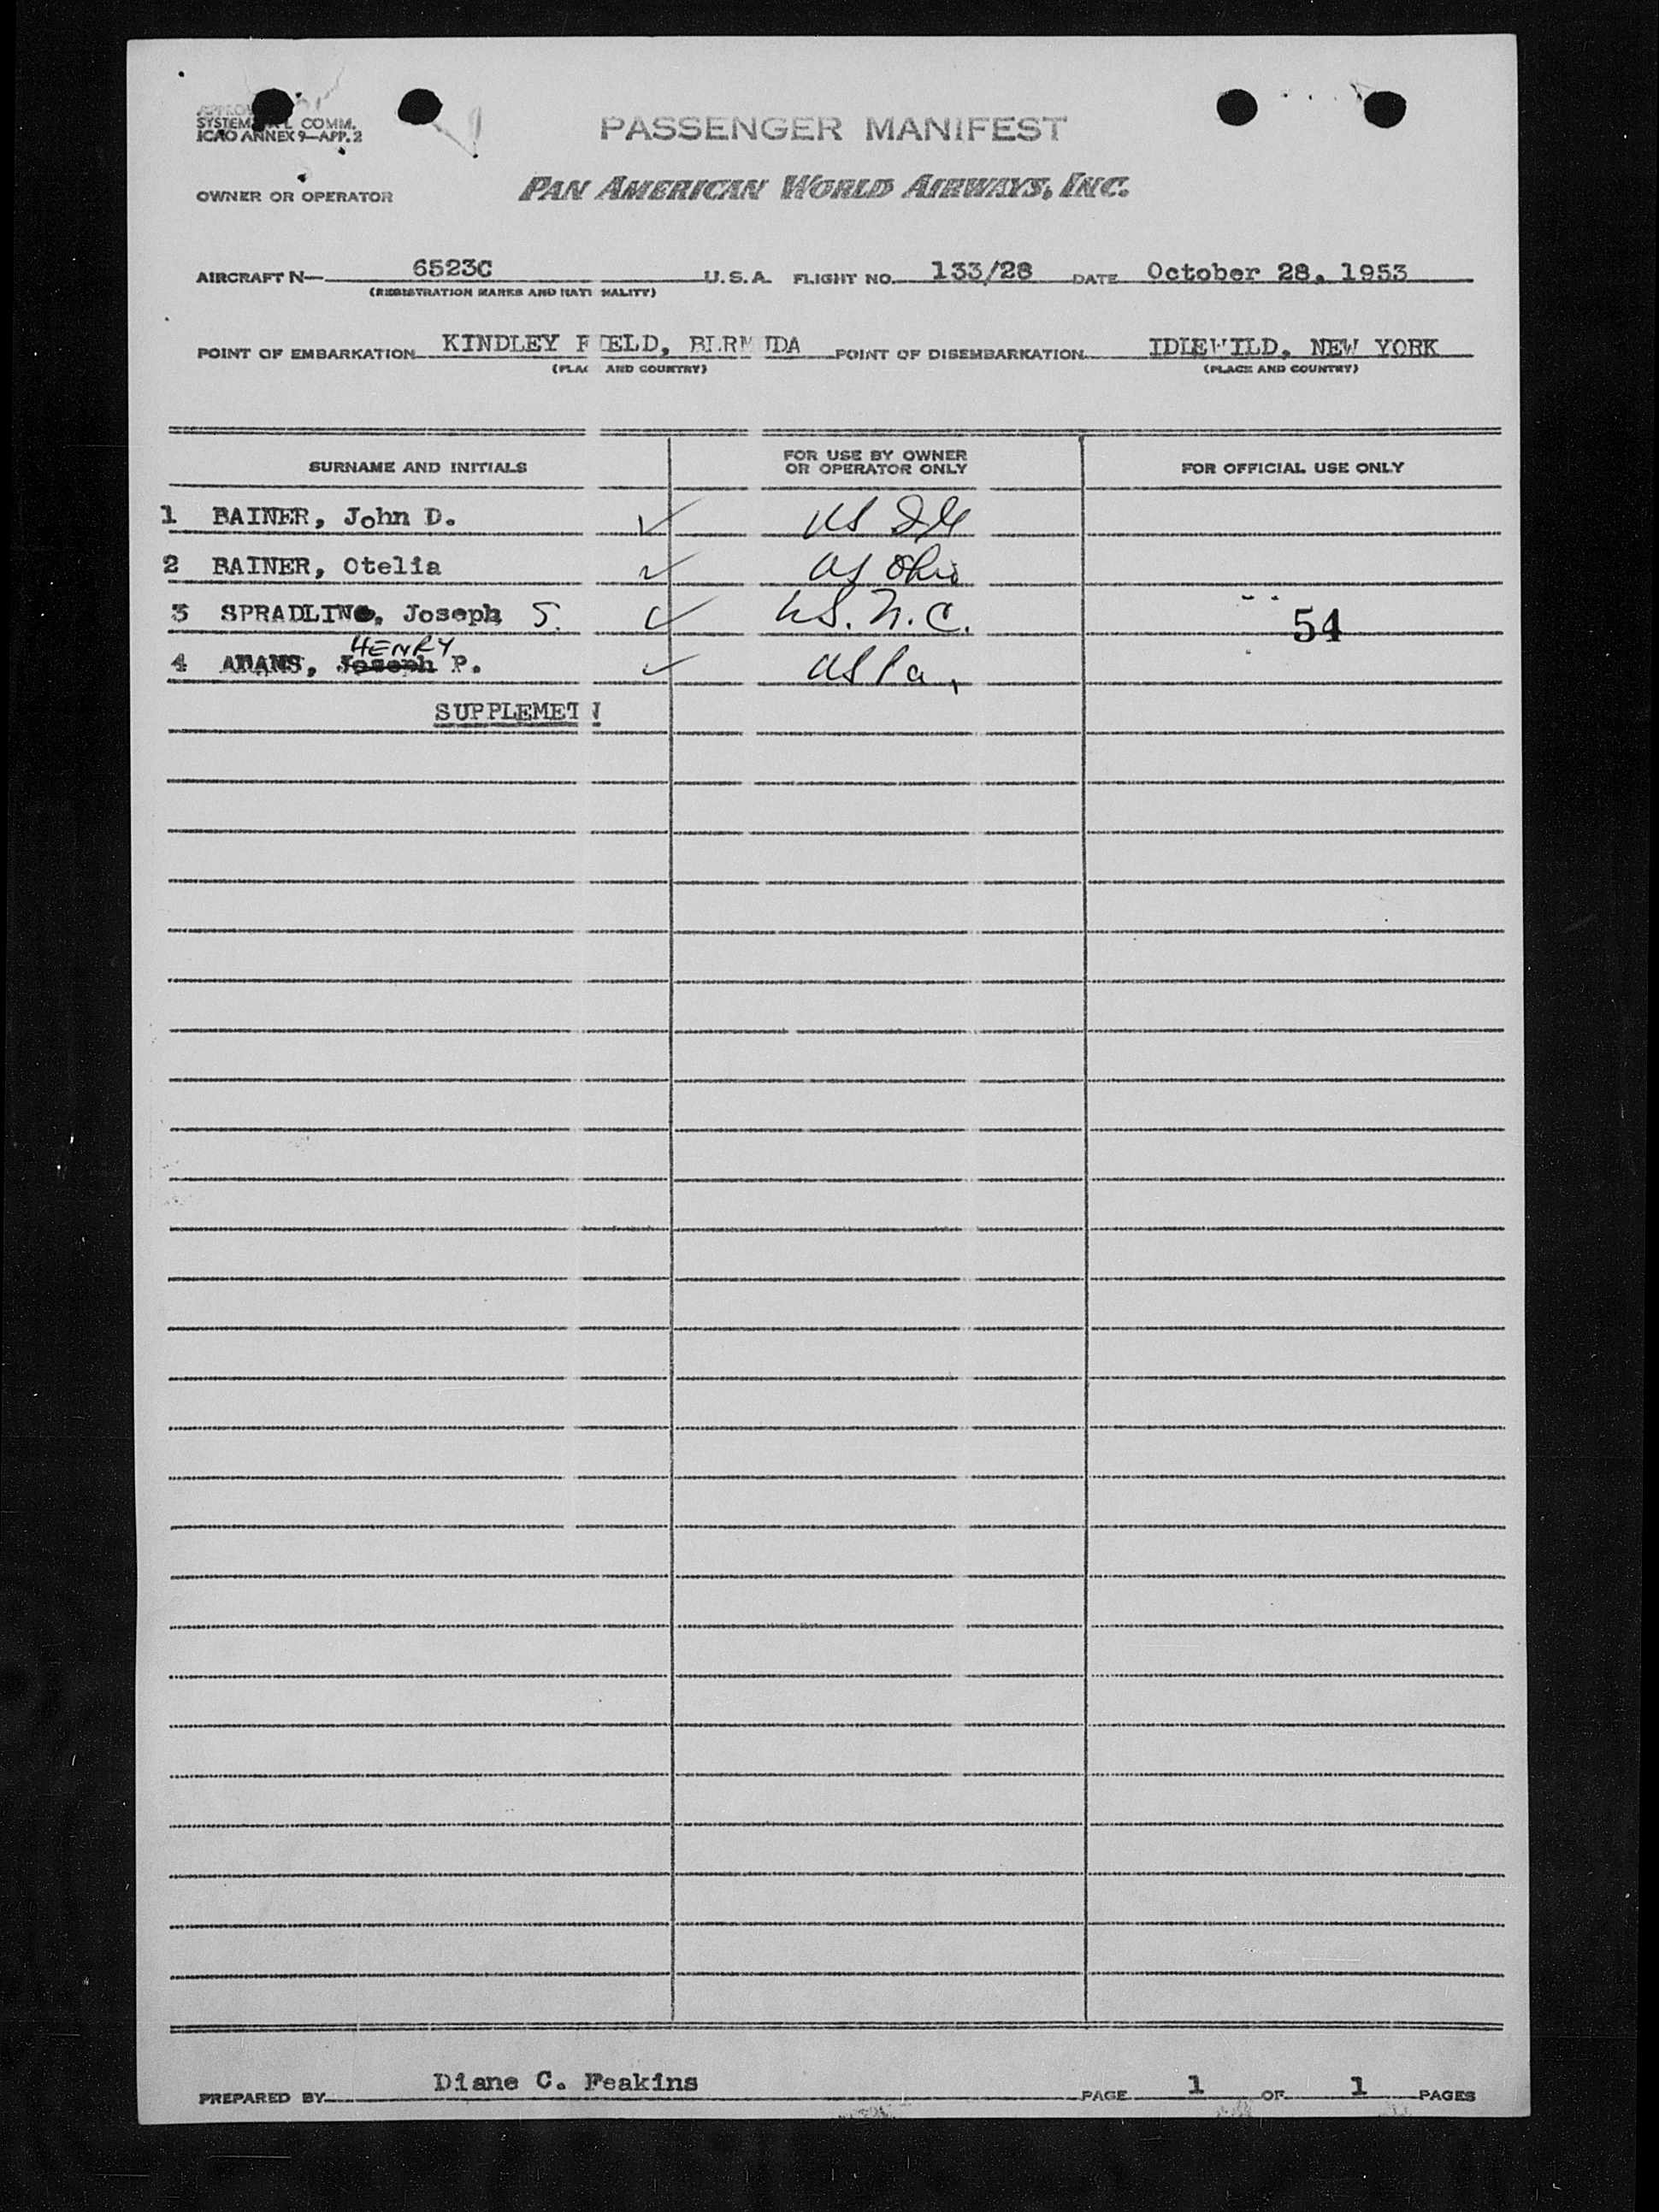 SYSTEM COMM.
ICAO ANNEX 9—APP. 2
PASSENGER MANIFEST
OWNER OR OPERATOR PAN AMERICAN WORLD AIRWAYS, INC.
AIRCRAFT N— 6523C U.S.A. FLIGHT NO. 133/28 DATE October 28, 1953
(REGISTRATION MARKS AND NATIONALITY)
POINT OF EMBARKATION KINDLEY FIELD, BERMUDA POINT OF DISEMBARKATION IDLEWILD, NEW YORK
(PLACE AND COUNTRY) (PLACE AND COUNTRY)
SURNAME AND INITIALS FOR USE BY OWNER OR OPERATOR ONLY FOR OFFICIAL USE ONLY
1 BAINER, John D. ✓ US
2 BAINER, Otelia ✓ US Ohio
3 SPRADLING, Joseph S. ✓ US. N.C. 54
HENRY
4 ADAMS, Joseph P. ✓ US Pa.
SUPPLEMETN
PREPARED BY Diane C. Feakins PAGE 1 OF 1 PAGES